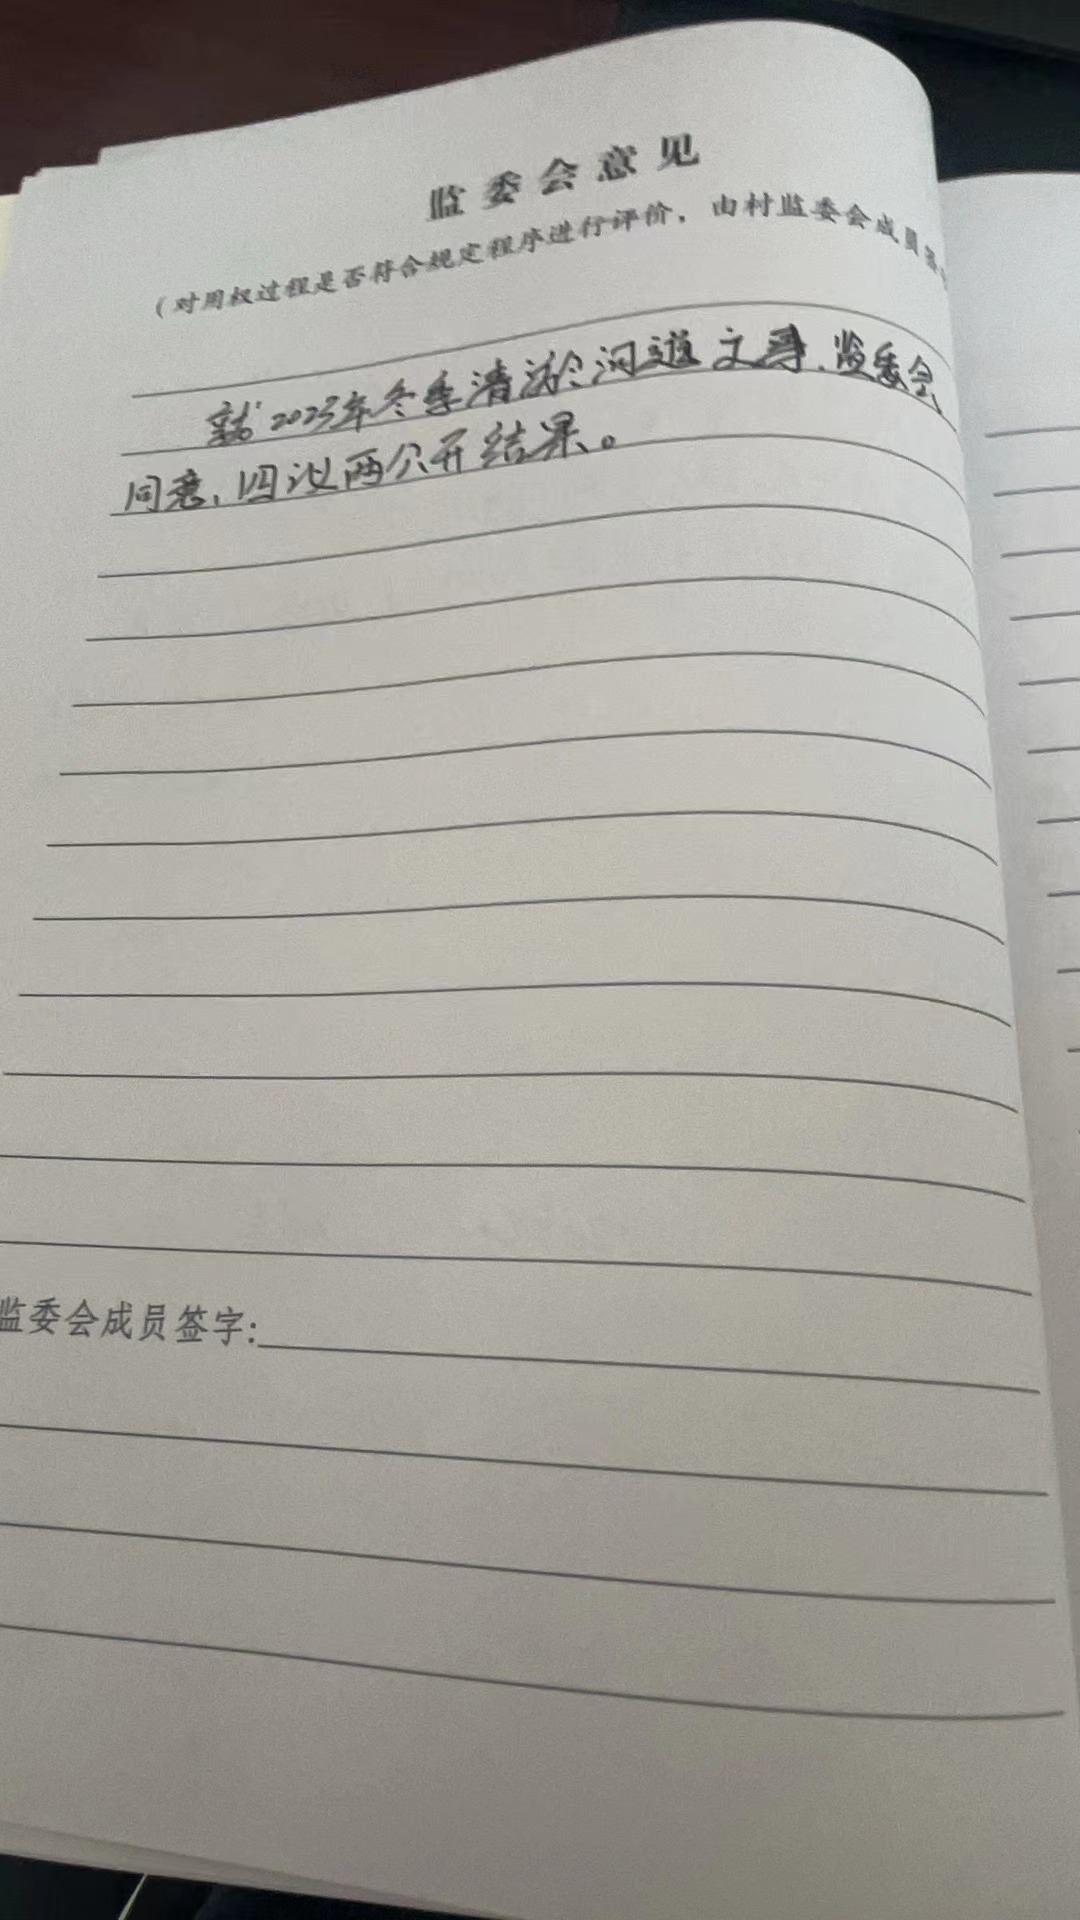 监委会意见
(对用权过程是否符合规定程序进行评价,由村监委会成员签
就2023年冬季清淤河道文事、监委会
同意、四议两公开结果。
监委会成员签字: